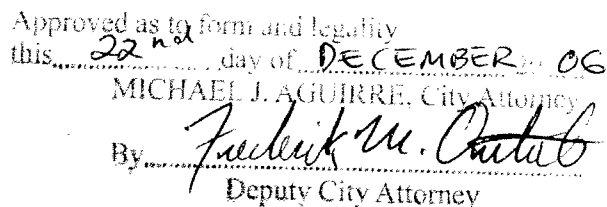 Approved as to form and legality
this 22nd day of DECEMBER 06
MICHAEL J. AGUIRRE, City Attorney
By Frederik M.
Deputy City Attorney